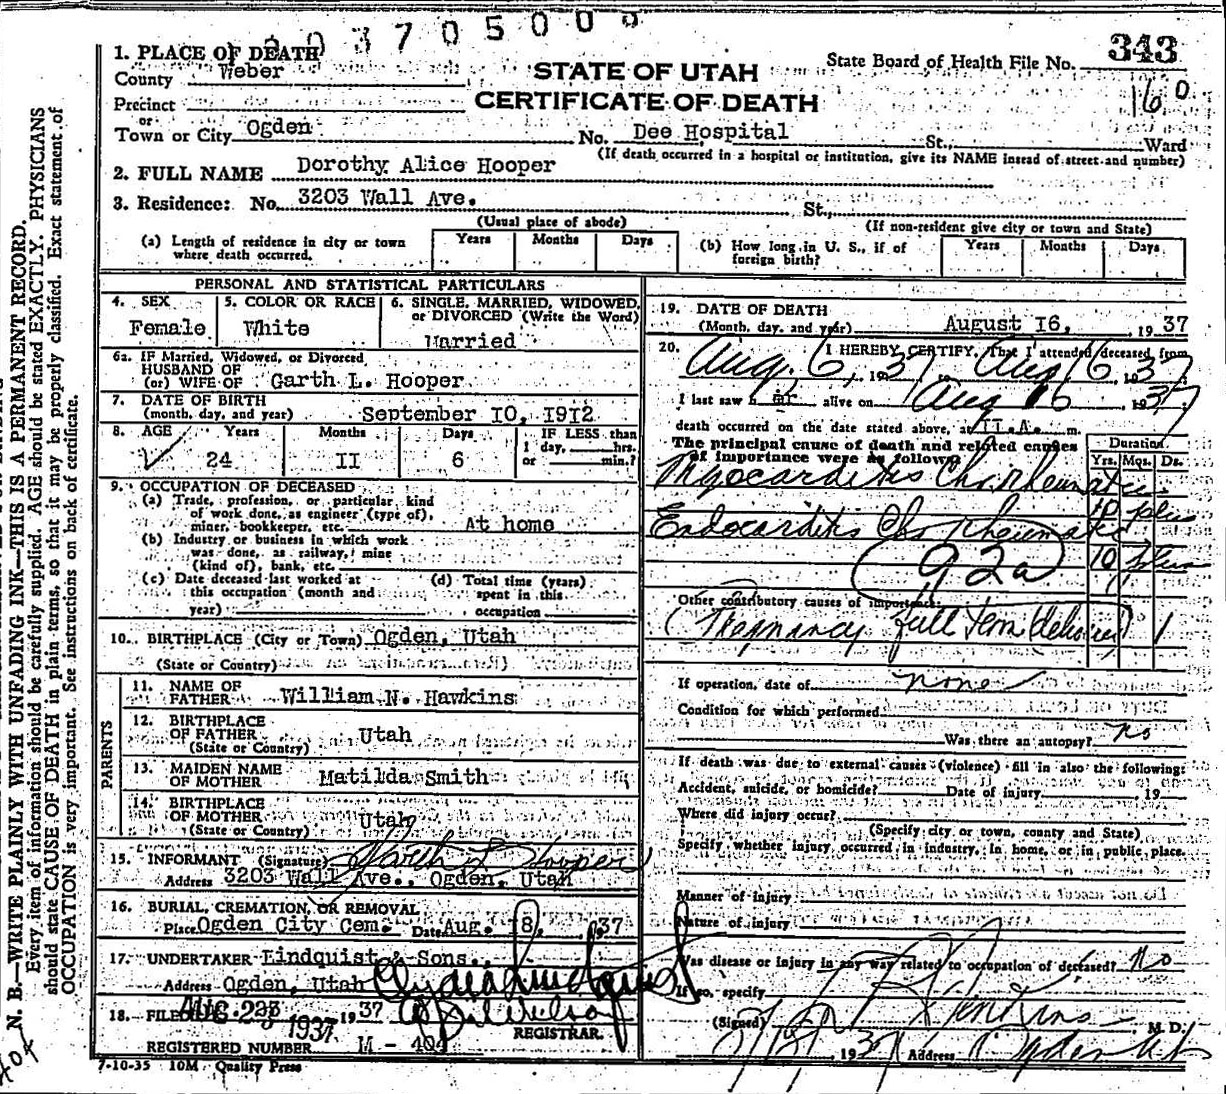 1 2 0 3 7 0 5 0 0 8
1. PLACE OF DEATH
County Weber
STATE OF UTAH
State Board of Health File No. 343
CERTIFICATE OF DEATH
160
Precinct
or
Town or City Ogden No. Dee Hospital St., Ward
(If death occurred in a hospital or institution, give its NAME instead of street and number)
2. FULL NAME Dorothy Alice Hooper
3. Residence: No. 3203 Wall Ave. St.,
(Usual place of abode) (If non-resident give city or town and State)
(a) Length of residence in city or town where death occurred. Years Months Days
(b) How long in U. S., if of foreign birth? Years Months Days
PERSONAL AND STATISTICAL PARTICULARS
4. SEX Female
5. COLOR OR RACE White
6. SINGLE, MARRIED, WIDOWED, or DIVORCED (Write the Word) Married
6a. IF Married, Widowed, or Divorced
HUSBAND OF
(or) WIFE OF Garth L. Hooper
7. DATE OF BIRTH
(month, day, and year) September 10, 1912
8. AGE Years Months Days IF LESS than
24 11 6 1 day, hrs.
or min.?
9. OCCUPATION OF DECEASED
(a) Trade, profession, or particular kind
of work done, as engineer (type of),
miner, bookkeeper, etc. At home
(b) Industry or business in which work
was done, as railway, mine
(kind of), bank, etc.
(c) Date deceased last worked at
this occupation (month and
year)
(d) Total time (years)
spent in this
occupation
10. BIRTHPLACE (City or Town) Ogden, Utah
(State or Country)
PARENTS
11. NAME OF
FATHER William N. Hawkins
12. BIRTHPLACE
OF FATHER Utah
(State or Country)
13. MAIDEN NAME
OF MOTHER Matilda Smith
14. BIRTHPLACE
OF MOTHER Utah
(State or Country)
15. INFORMANT (Signature) Garth L Hooper
Address 3203 Wall Ave., Ogden, Utah
16. BURIAL, CREMATION, OR REMOVAL
Place Ogden City Cem. Date Aug. 18, 1937
17. UNDERTAKER Lindquist & Sons.,
Address Ogden, Utah Clyde Lindquist
18. FILED AUG 23 1937 1937
REGISTRAR.
REGISTERED NUMBER M - 404
7-10-35 10M Quality Press
19. DATE OF DEATH
(Month, day, and year) August 16, 1937
20. I HEREBY CERTIFY, That I attended deceased from
Aug. 6, 1937 to Aug 16 1937
I last saw her alive on Aug 16 1937
death occurred on the date stated above, at 11.A. m.
The principal cause of death and related causes
of importance were as follows: Duration
Yrs. Mos. Ds.
Myocarditis Ch. Rheumatic
10 plus
Endocarditis Chr Rheumatic
92a 10 plus
Other contributory causes of importance:
(Pregnancy full term delivered) 1
If operation, date of none
Condition for which performed
Was there an autopsy? no
If death was due to external causes (violence) fill in also the following:
Accident, suicide, or homicide? Date of injury 19
Where did injury occur?
(Specify city or town, county and State)
Specify whether injury occurred in industry, in home, or in public place.
Manner of injury
Nature of injury
Was disease or injury in any way related to occupation of deceased? No
If so, specify
(Signed) Jenkins M. D.
1937 Address Ogden Ut
N. B.—WRITE PLAINLY WITH UNFADING INK—THIS IS A PERMANENT RECORD.
Every item of information should be carefully supplied. AGE should be stated EXACTLY. PHYSICIANS
should state CAUSE OF DEATH in plain terms, so that it may be properly classified. Exact statement of
OCCUPATION is very important. See instructions on back of certificate.
404